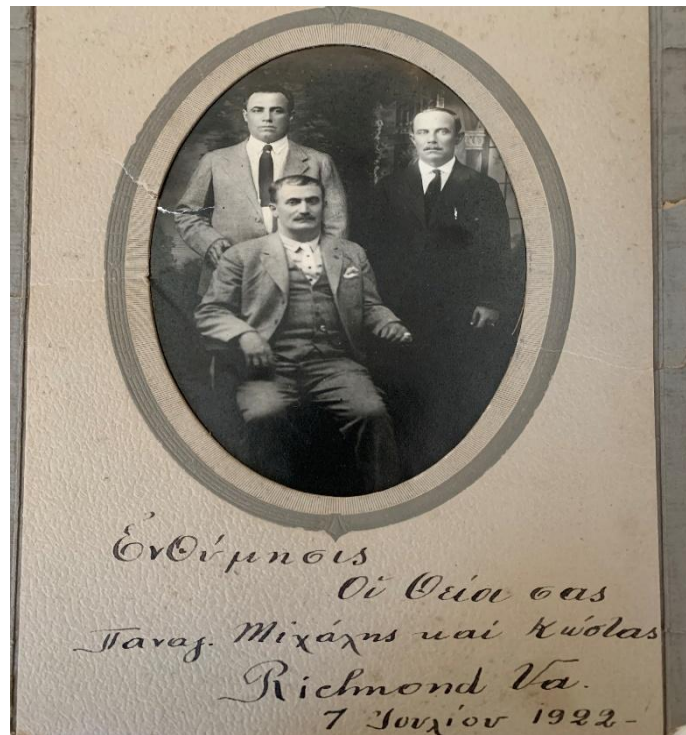 Ἐνθύμησις
Οἱ Θείοι σας
Παναγ. Μιχάλης καί Κώστας
Richmond Va.
7 Ἰουλίου 1922-